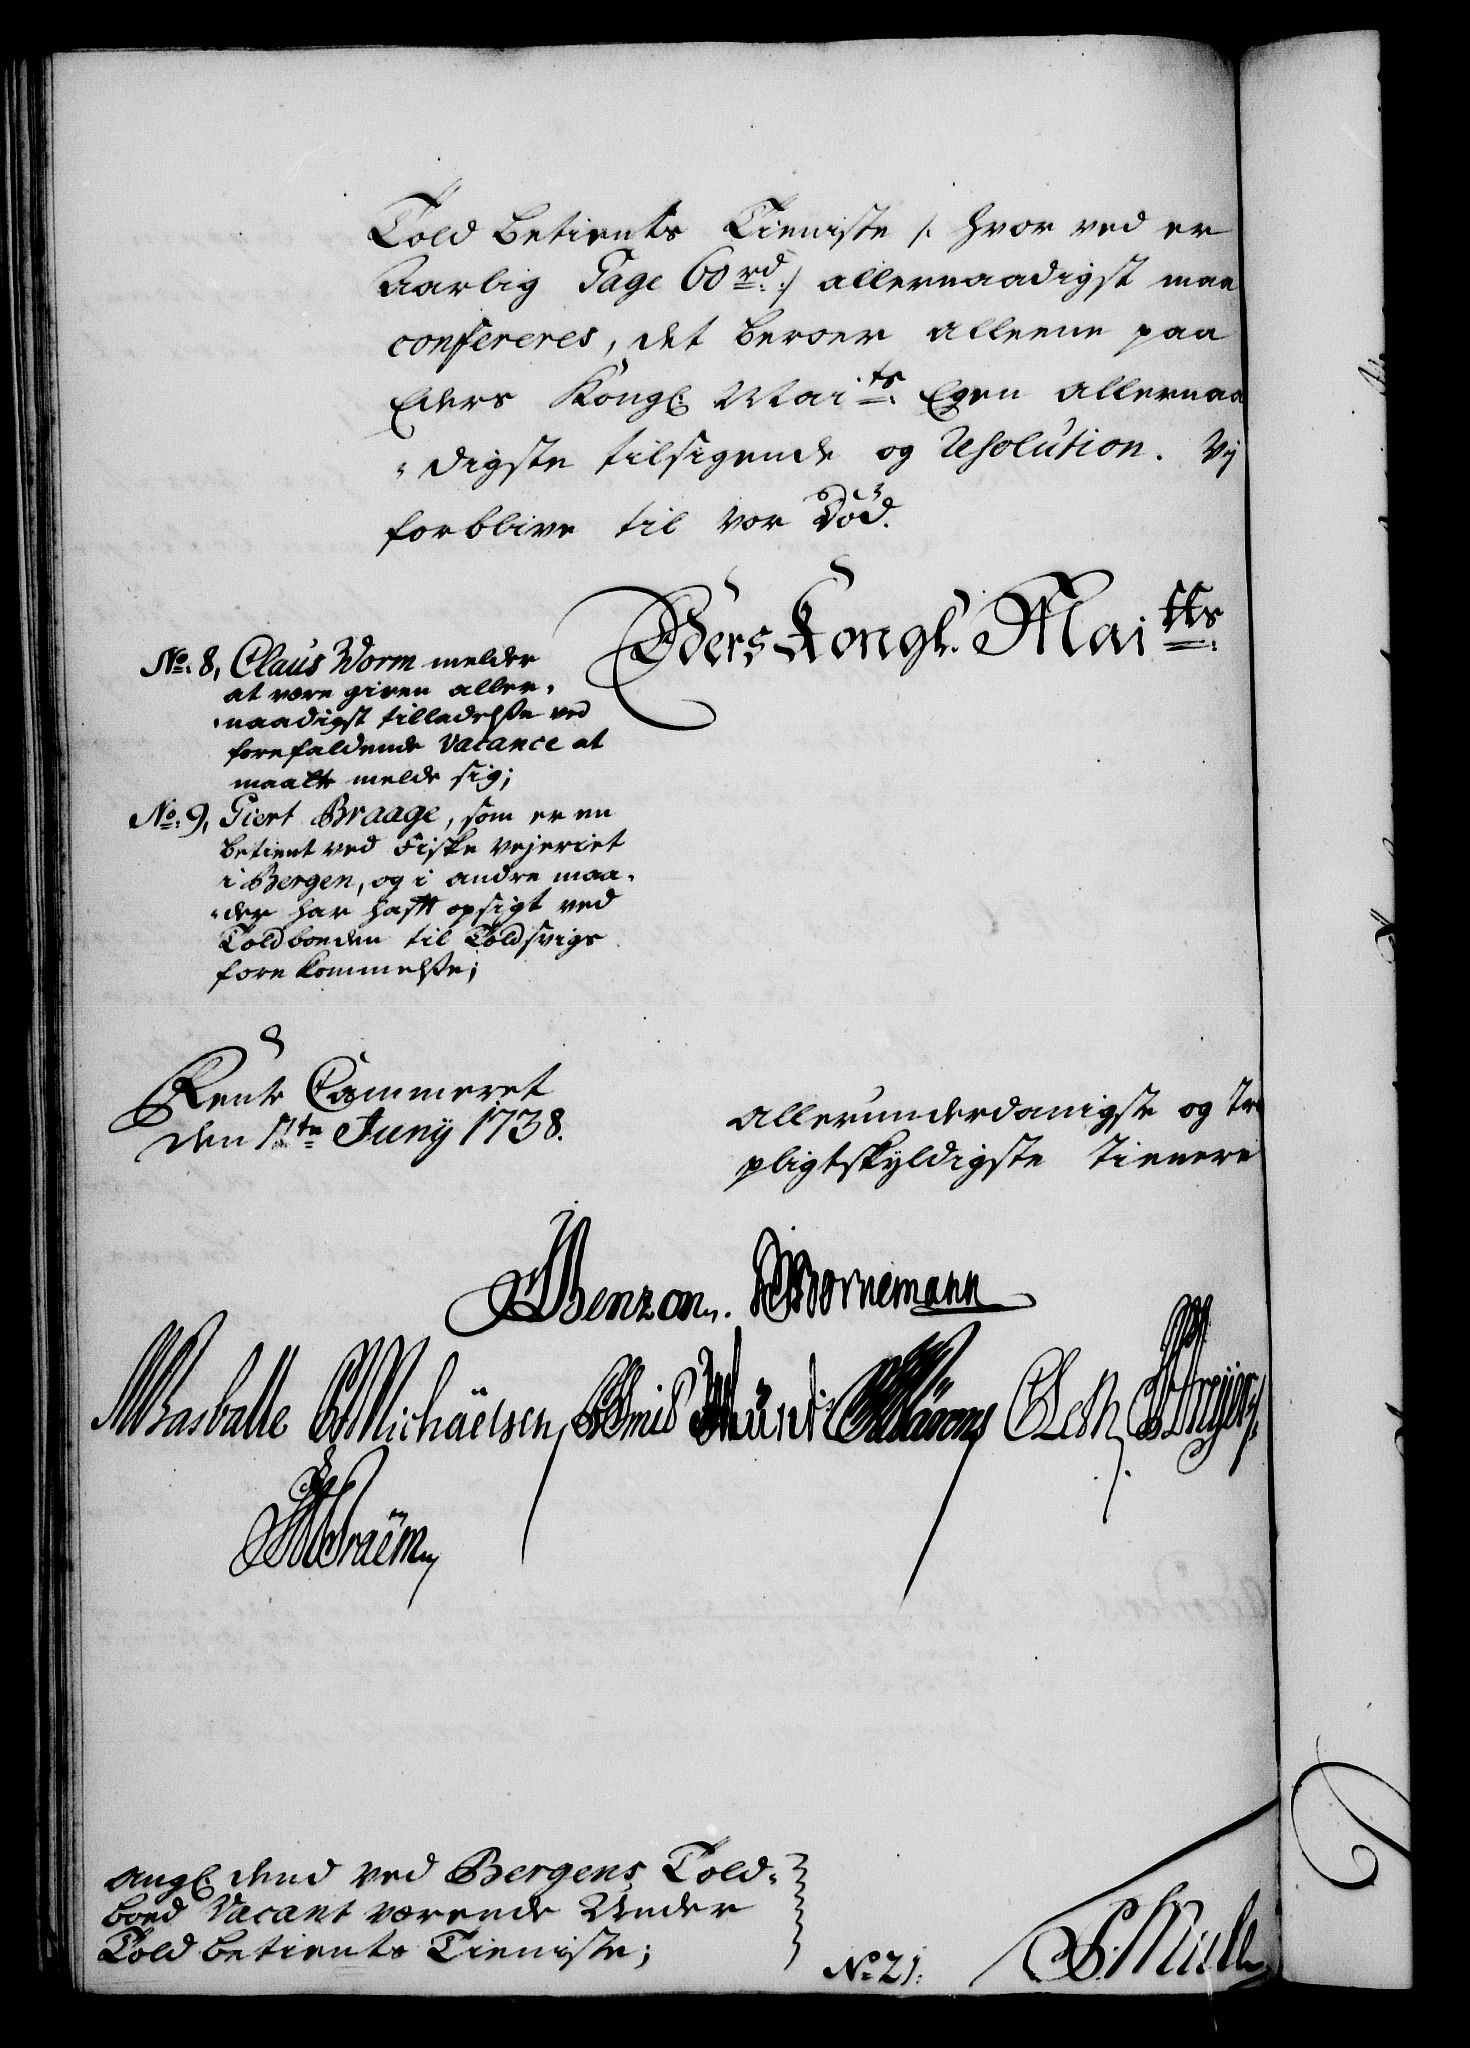 Told betients Tieniste /: hvor ved er
Aarlig Gage 60 rd :/ allernaadigst maa
confereres, det beroer alleene paa
Eders Kongl: Maits. Egen allernaa
-digste tilsigende og Resolution. Vij
forblive til vor Død.
Eders Kongl. Maitts.
No: 8, Claus Worm melder
at være given aller-
-naadigst tilladelsse ved
forefaldende Vacance at
maatte melde sig;
No: 9, Giert Braage, som er en
betient ved Fiske vejeriet
i Bergen, og i andre maa-
-der har hafft opsigt ved
Toldboeden til Toldsvigs
forekommelsse;
Rente Cammeret
den 7te Junij 1738.
allerunderdanigste og Tro
pligtskyldigste tienere
Benzon. Bornemann
Basballe Michaelsen, Smid Munk C Lesth
Wraëm
angl. dend ved Bergens Told-
boed Vacant værende Under
Told betients Tieniste;
No 21:
S. Mule